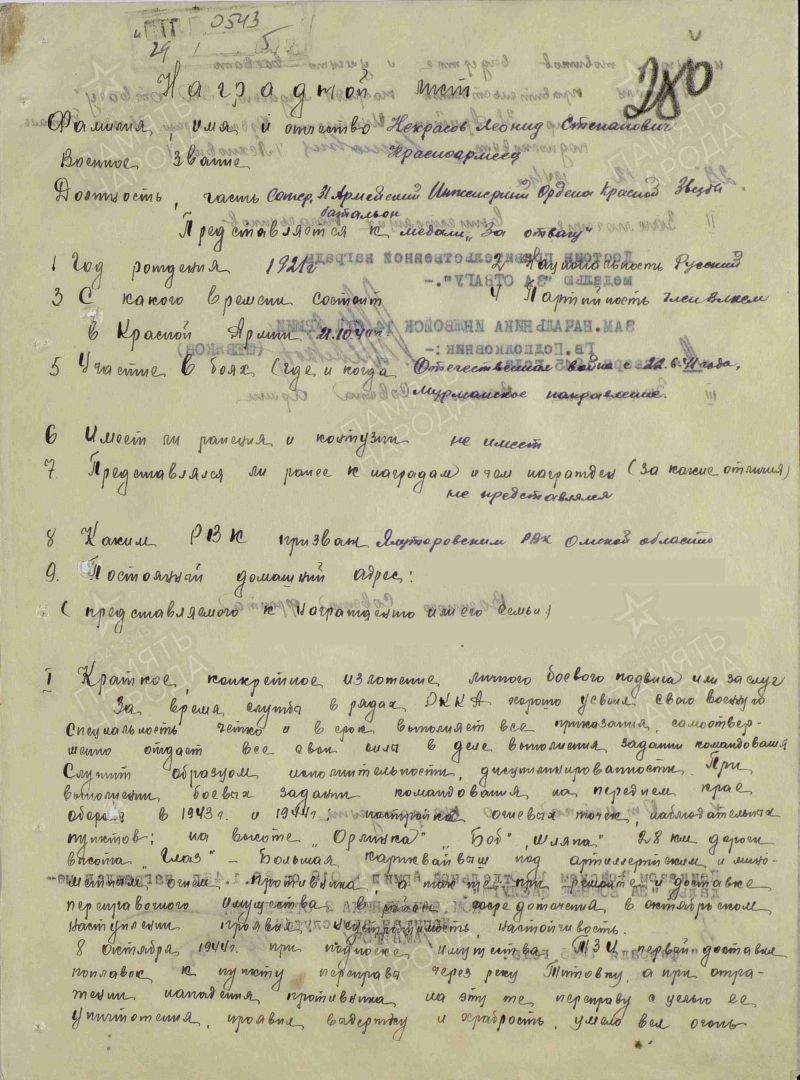 0543
29 I
280
Наградной лист
Фамилия, имя, и отчество Некрасов Леонид Степанович
Военное звание Красноармеец
Должность, часть Сапер, 31 Армейский Инженерный Ордена Красной Звезды
батальон
Представляется к медали „За отвагу"
1 Год рождения 1921г 2 Национальность Русский
3 С какого времени состоит 4 Партийность член ВЛКСМ
в Красной Армии 21.10.40г.
5 Участие в боях (где и когда Отечественная война с 22.6.41 года,
Мурманское направление.
6 Имеет ли ранения и контузии не имеет
7 Представлялся ли ранее к наградам и чем награжден (за какие отличия)
не представлялся
8 Каким РВК призван Ялуторовским РВК Омской области
9. Постоянный домашний адрес:
(представляемого к награждению или его семьи)
I Краткое, конкретное изложение личного боевого подвига или заслуг
За время службы в рядах РККА хорошо усвоил свою военную
специальность четко и в срок выполняет все приказания, самоотвер-
женно отдает все свои силы в деле выполнения задании командования
Служит образцом исполнительности, дисциплинированности. При
выполнении боевых задании командования на переднем крае
обороны в 1943 г. и 1944 г.: постройка огневых точек, наблюдательных
пунктов: на высоте „Орлинка" „Боб" „Шляпа" 28 км дороги
высота „Глаз" – Большая под артиллерийским и мино-
метным огнем противника, а также при ремонте и доставке
переправочного имущества в район сосредоточения в октябрьском
наступлении проявил настойчивость.
8 октября 1944г. при подноске имущества ТЗИ первой доставки
поплавок к пункту переправы через реку Титовку, а при отра-
жении нападения противника на эту же переправу с целью ее
уничтожения, проявил выдержку и храбрость, умело вел огонь